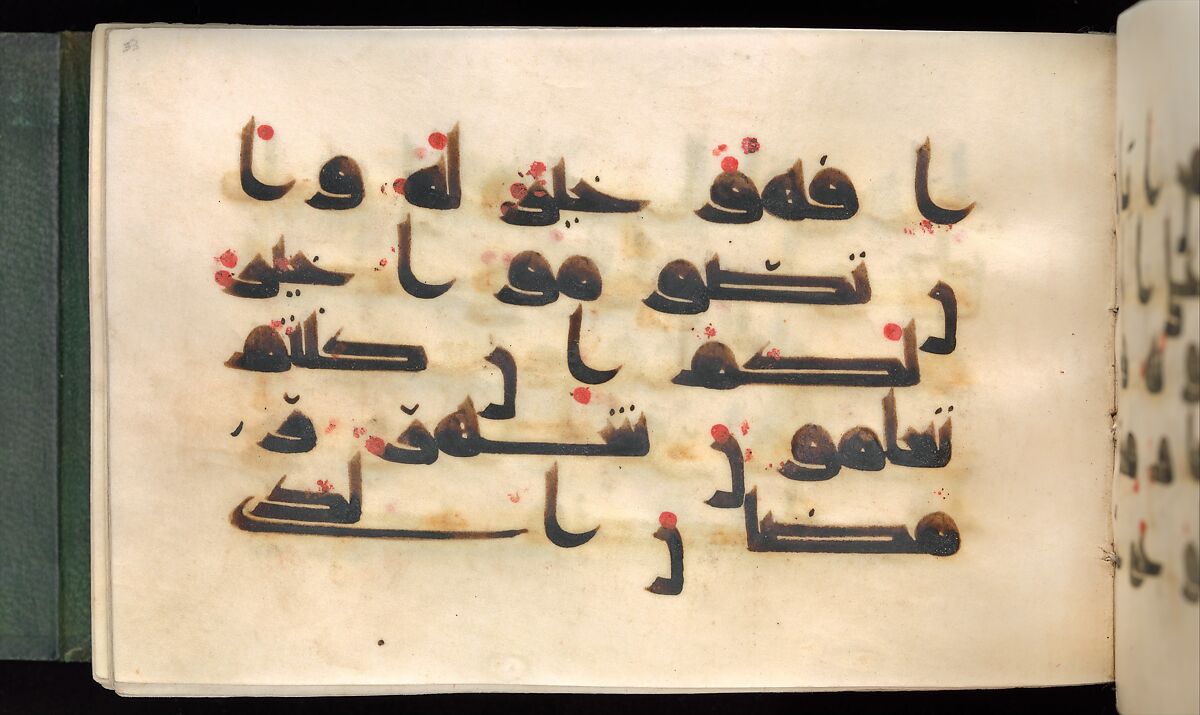 ا فهو خير له وا
ن تصوموا خير
لكم ان كنتم
تعلمون شهر ر
مضان الذى